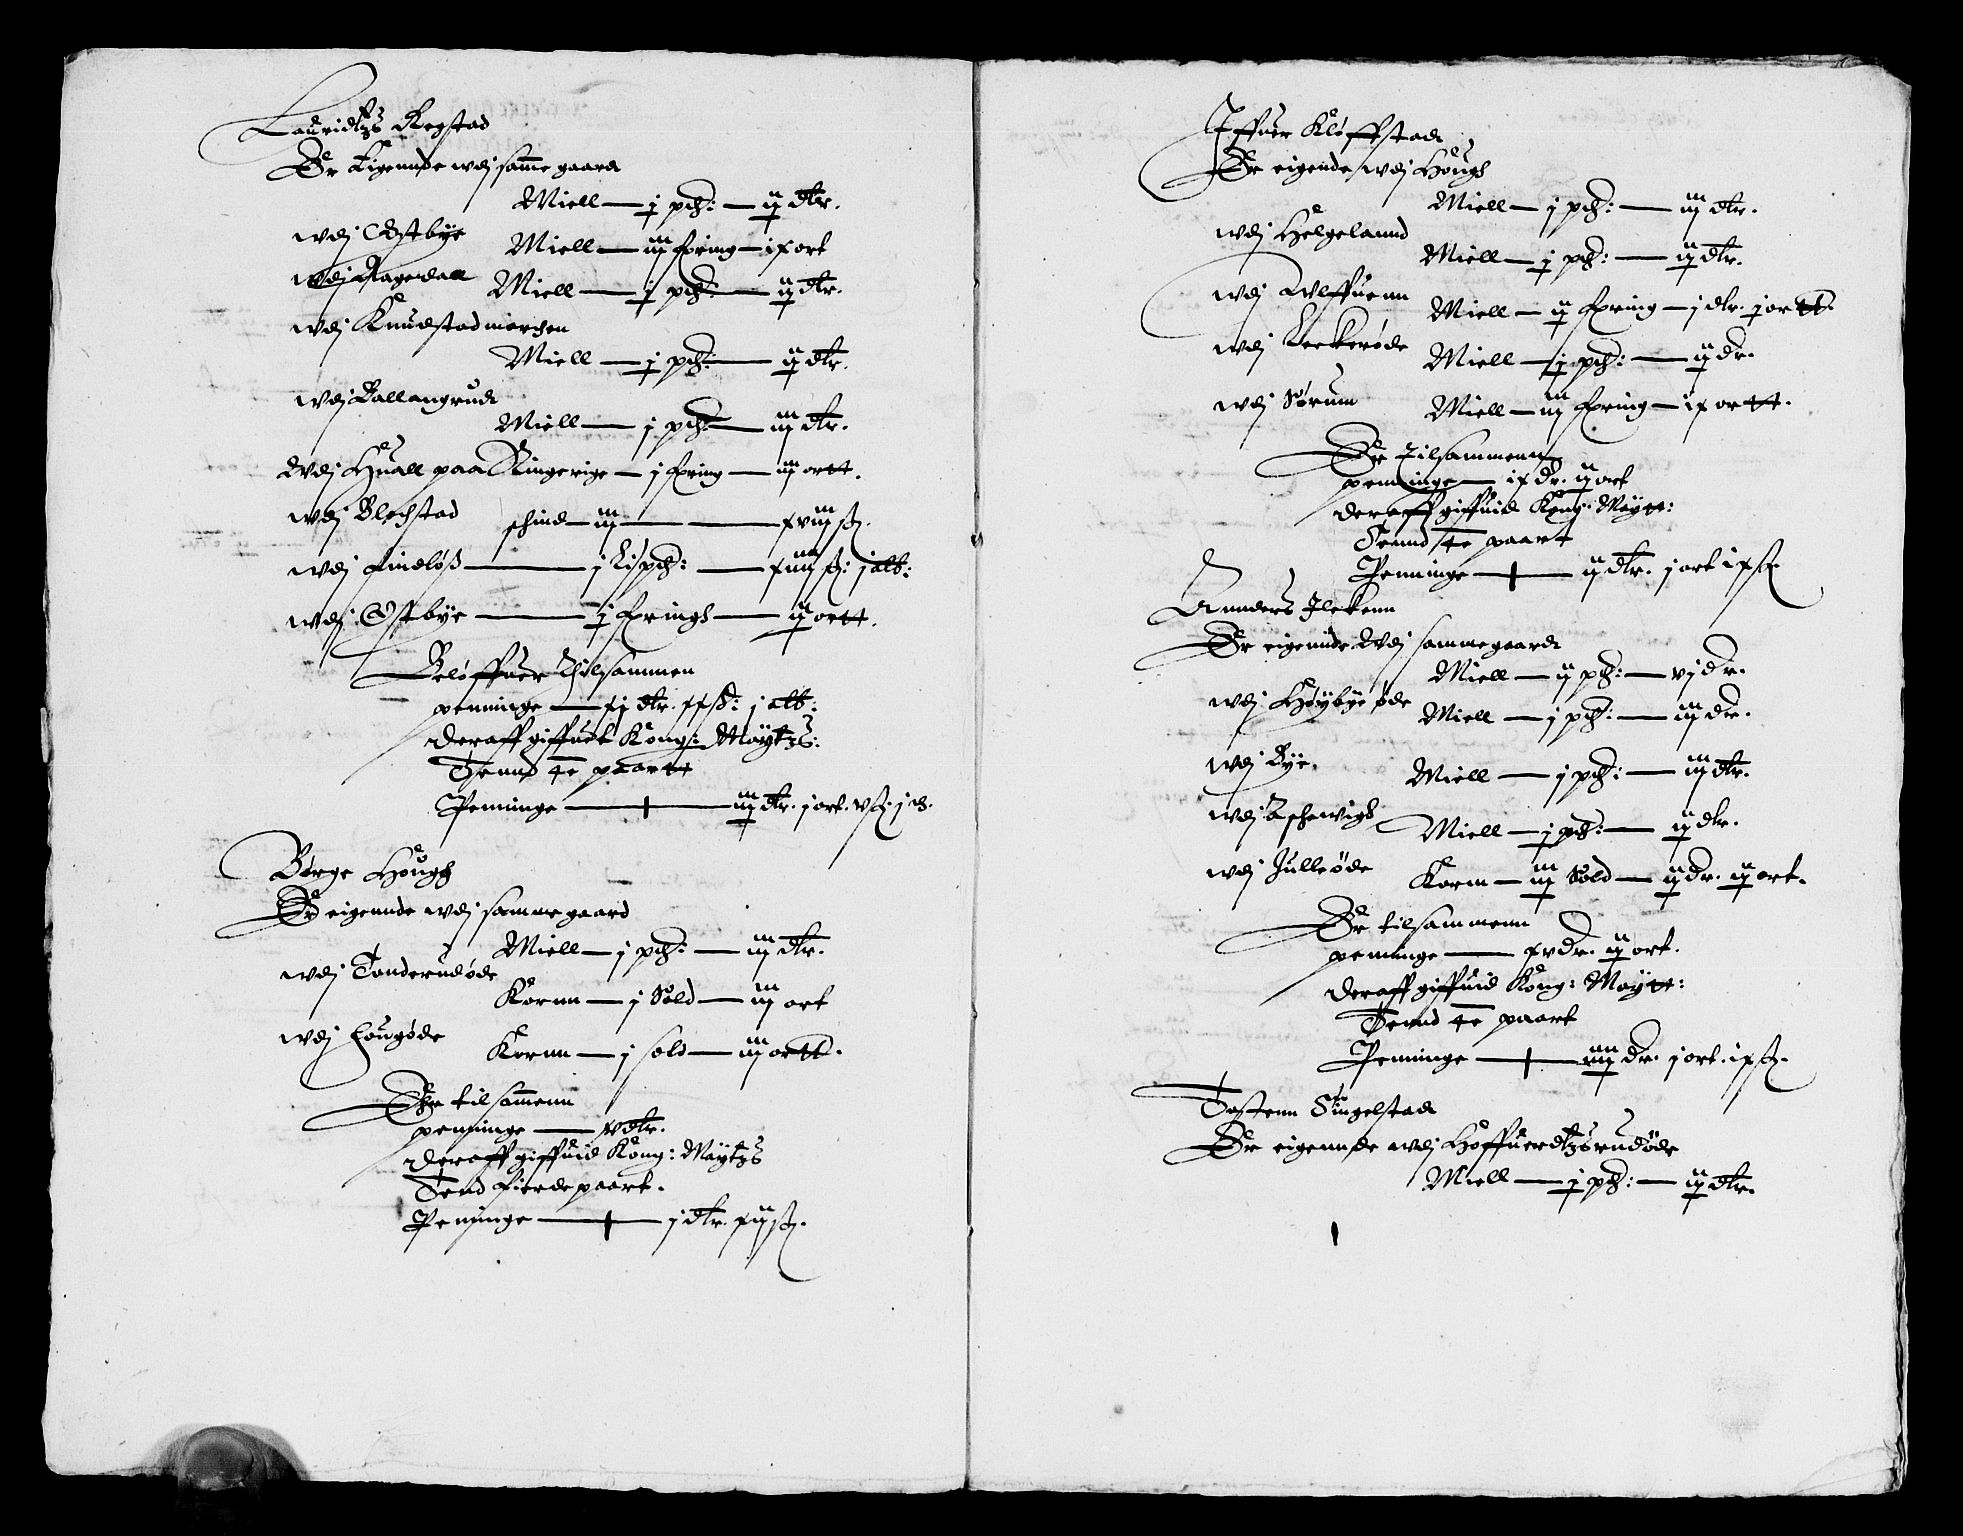 Lauridtzs Regstad
Er Eigennde wdj samme gaard
Miell — j pd: — ij dlr.
wdj Østbye Miell — iij fixring — i f ort
wdj Aagerdall Miell — j pd: — ij dlr.
wdj Knudstad marchen
Miell — j pd: — ij dlr.
wdj Ballangrud
Miell — j pd: — iij dlr.
Wdj Huall paa Ringerige — j fixring — iij ortt.
wdj Blechstad schind — iij — xviij ß.
wdj Lindløß — j Lispd: — xiiij ß: j alb:
wdj Østbye — j fixringh — ij ortt.
Beløffuer Thilsammen
penninge — xj dlr. xx ß: j alb:
deraff giffuet Kong: Maytzs:
Tennd 4e paartt
Penninge — iij dlr. j ort. v ß. j
Børge Hough
Er eigennde wdj samme gaard
Miell — j pd: — iij dlr.
wdj Tanderudøde
Kornn — j Sold — iij ort
wdj Hougøde
Kornn — j sold — iij ortt.
Er tilsammenn
penninge — v dlr.
deraff giffuid Kong: Maytzs
Tend fierde paart.
Peninge — j dlr. xij ß.
Iffuer Kløffstad
Er eigende wdj Hough
Miell — j pd: — iij dlr.
wdj Helgelannd
Miell — j pd: — ij dlr.
wdj Wlffuenn
Miell — ij fixring — j dlr. j ortt
wdj Leckerøde
Miell — j pd: — ij dr.
wdj Sørum
Miell — iij fixring — i f ortt.
Er Tilsammenn
penninge — ix dr. ij ort
deraff giffuid Kong: Maytt:
Tennd 4e paart
Penninge — ij dlr. j ort i f ß.
Annders Ilekenn
Er eigennde Wdj samme gaard
Miell — ij pd: — vj dr.
wdj Høybye øde
Miell — j pd: — iij dr.
wdj Bye.
Miell — j pd: — iij dlr.
wdj Aschewigh
Miell — j pd: — ij dlr.
wdj Julleøde
Kornn — iij Sold — ij dr. ij ort.
Er tilsammenn
peninge — xv dr. ij ort.
deraff giffuid Kong: Maytt:
Tennd 4e paart
Penninge — iiij dr. j ort. i f ß.
Tostenn Singelstad
Er eigennde wdj Hoffuerdtzsrudøde
Miell — j pd: — ij dlr.